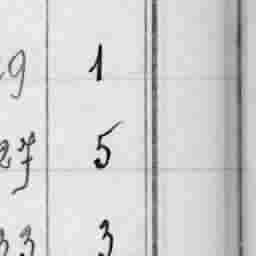 9 1
27 5
33 3